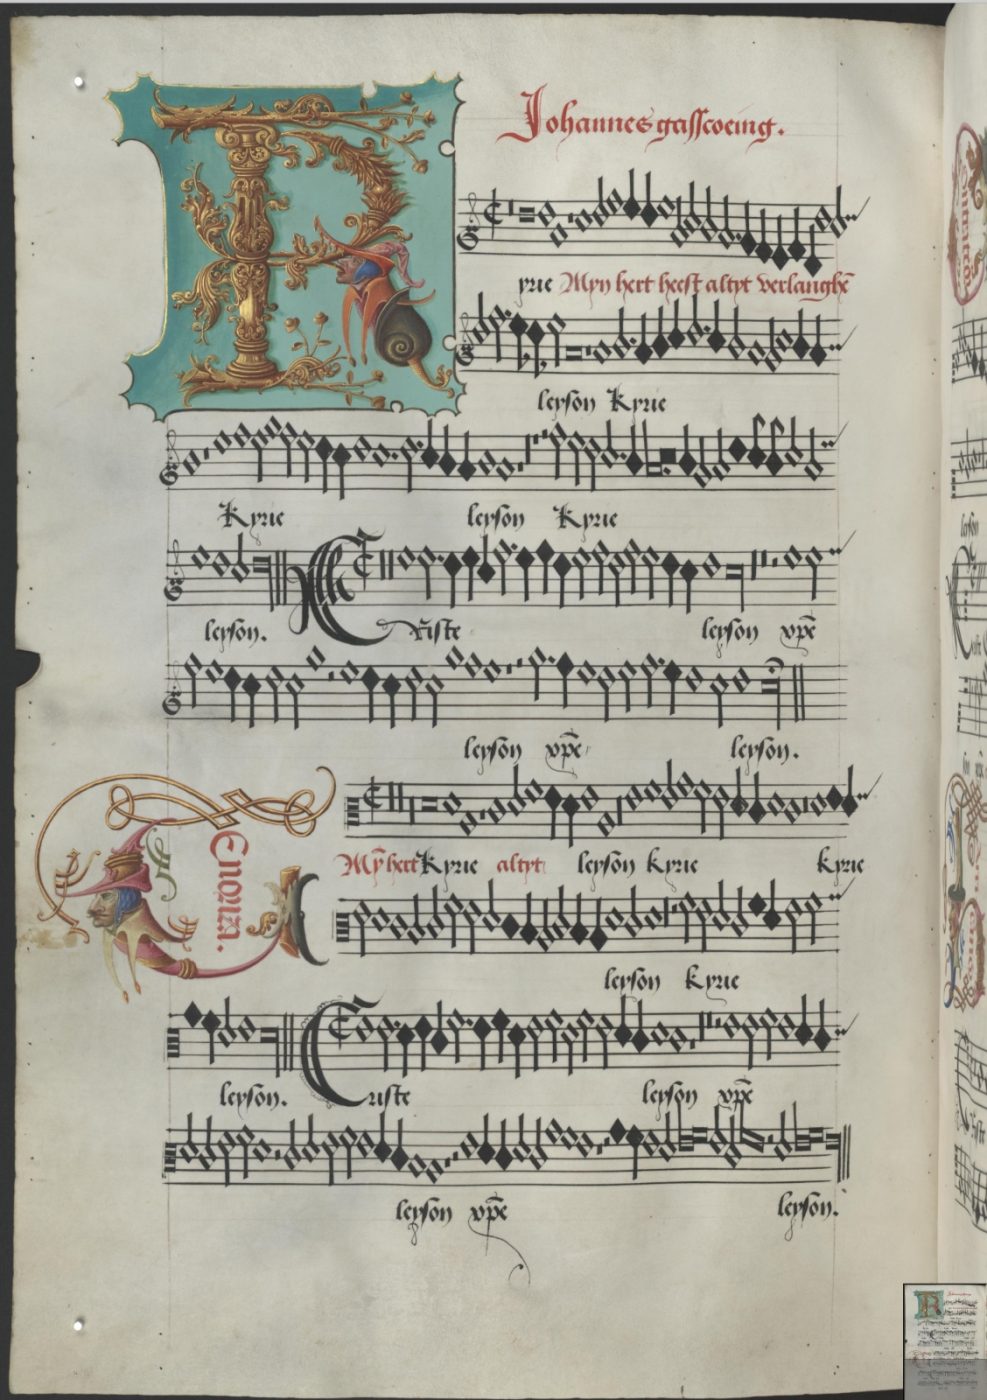 Johannes gasscoeing.
Kyrie Myn hert heeft altyt verlanghē
leyson Kyrie
Kyrie leyson Kyrie
leyson. Criste leyson xp̄e
leyson xp̄e leyson.
Tenorza.
Mȳ hert Kyrie altyt leyson kyrie kyrie
leyson kyrie
leyson. Criste leyson xp̄e
leyson xp̄e leyson.